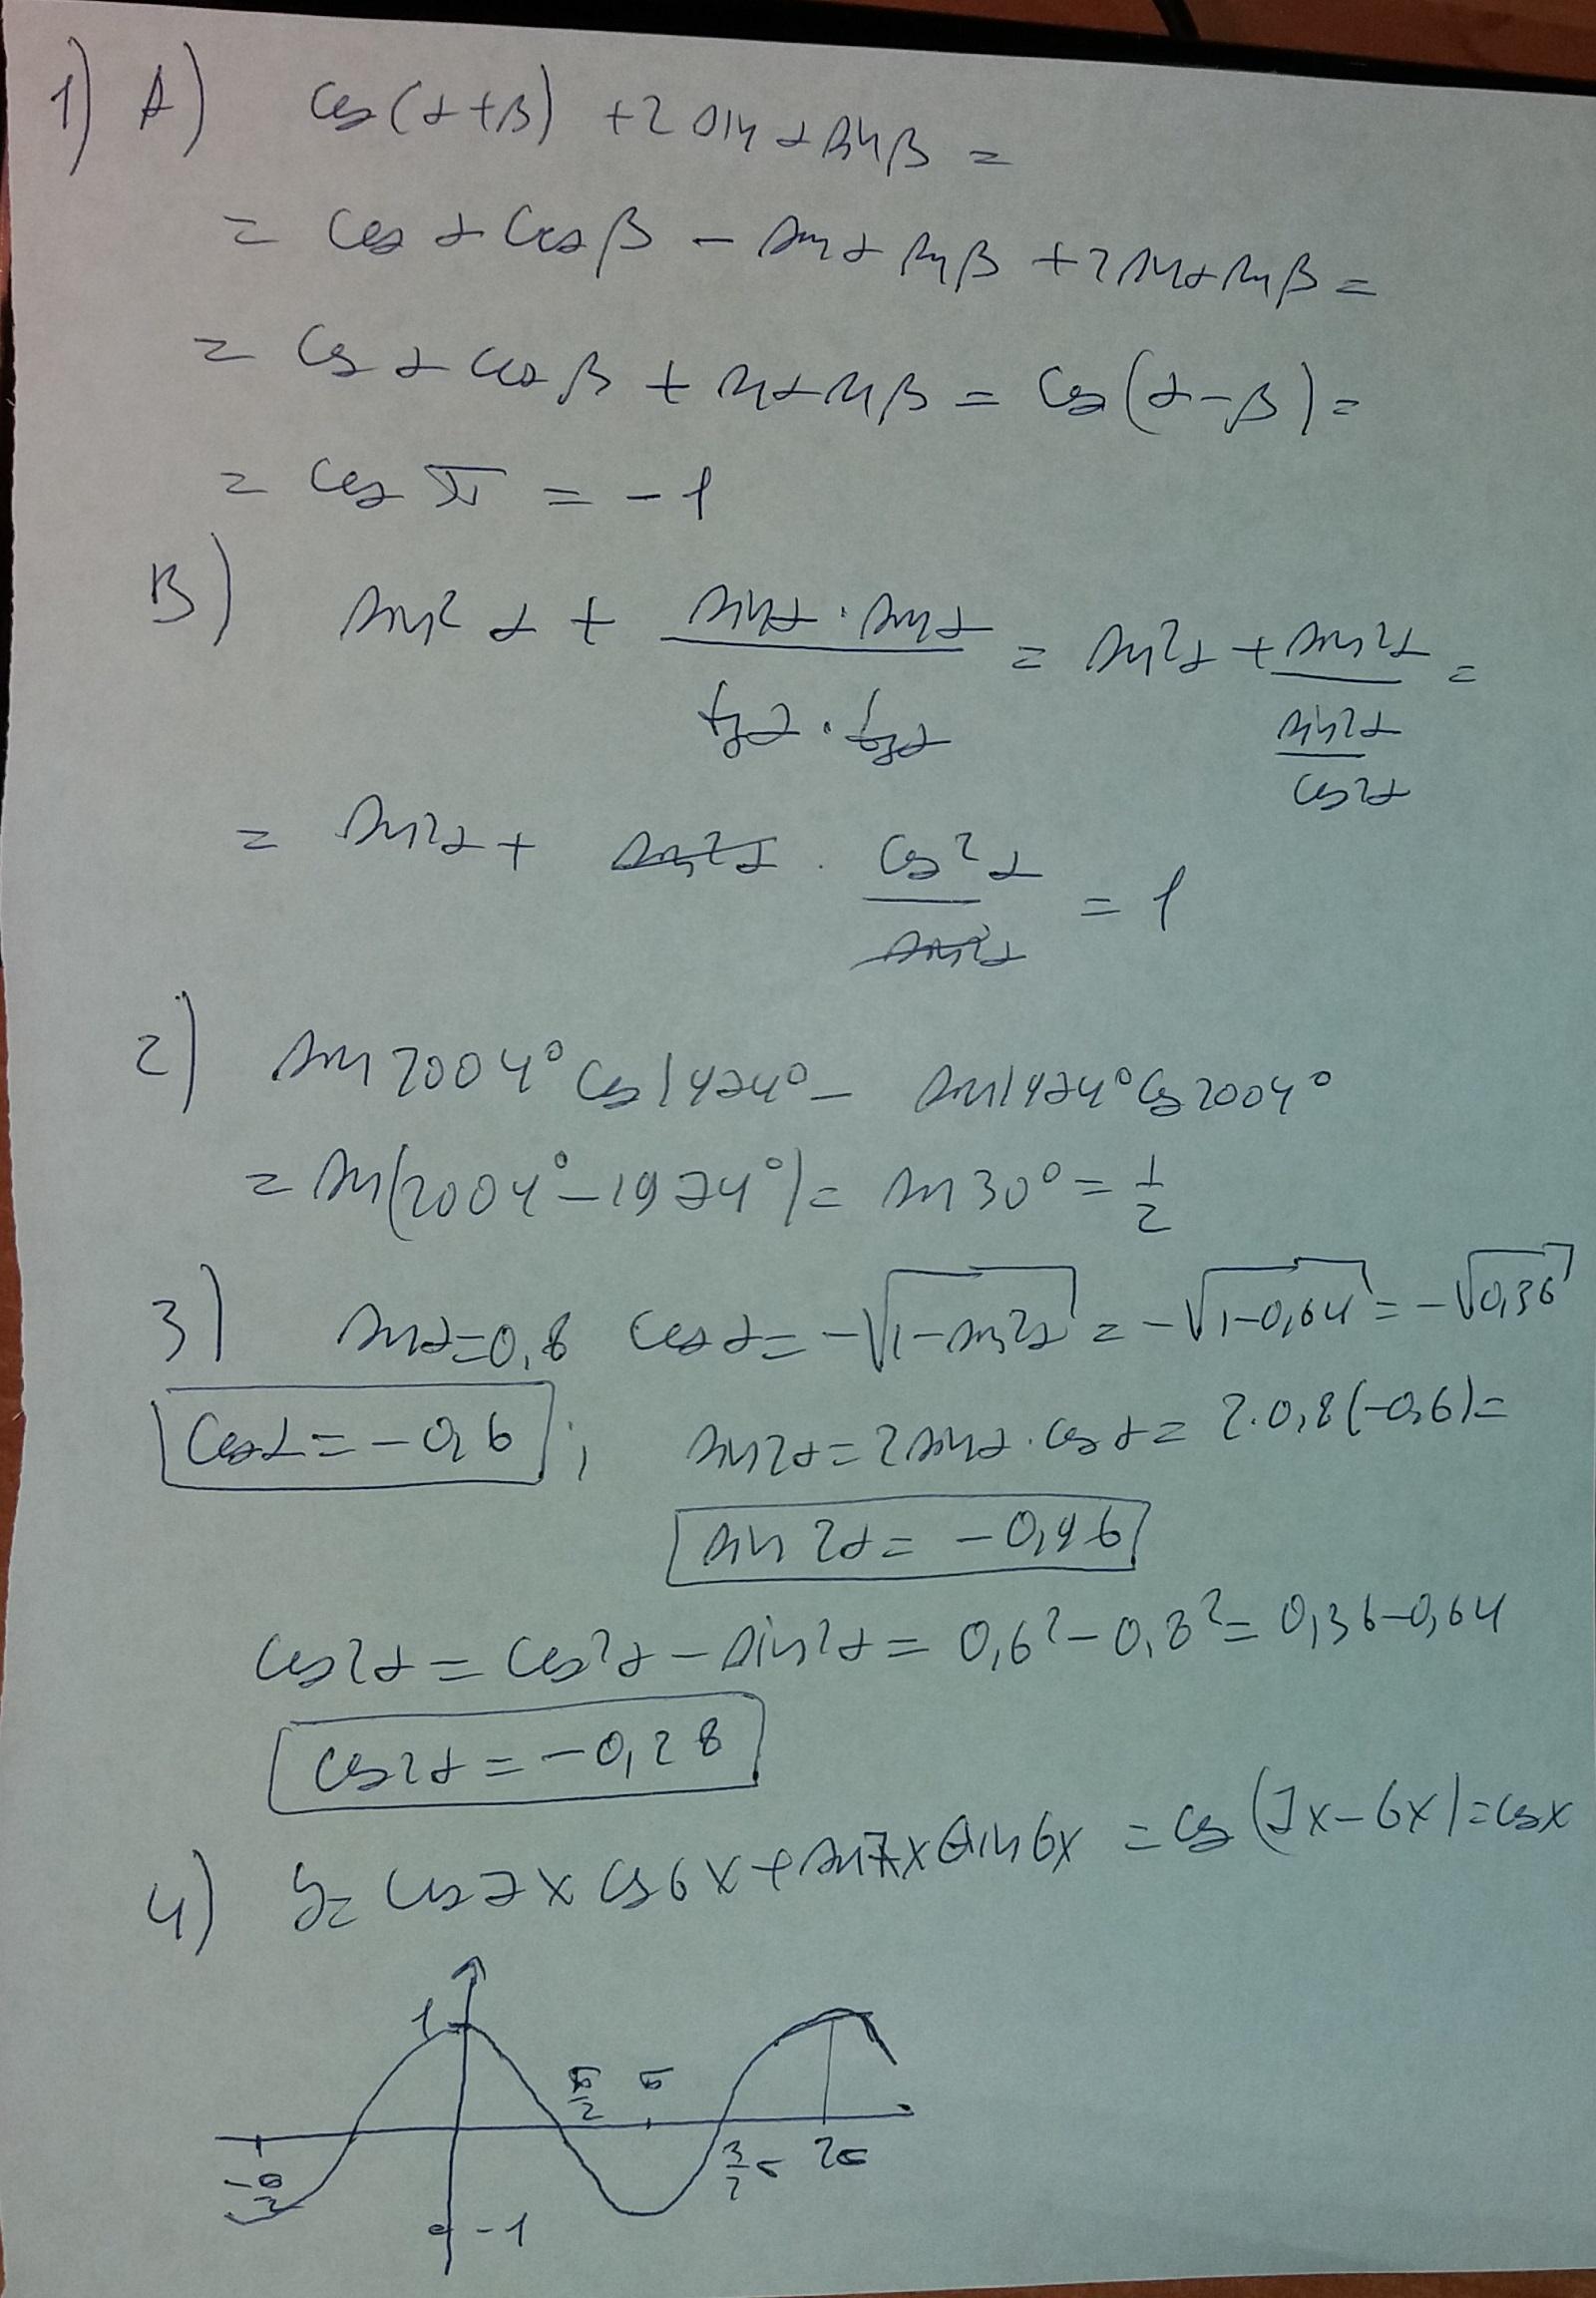 1) A) cos(α+β) + 2 sin α sin β =
= cos α cos β − sin α sin β + 2 sin α sin β =
= cos α cos β + sin α sin β = cos(α−β) =
= cos π = −1
B) sin² α + (sin α · sin α)/(tg α · tg α) = sin² α + sin² α/(sin² α/cos² α) =
= sin² α + sin² α · cos² α/sin² α = 1
2) sin 2004° cos 1974° − sin 1974° cos 2004°
= sin(2004° − 1974°) = sin 30° = 1/2
3) sin α = 0,8 cos α = −√(1−sin² α) = −√(1−0,64) = −√0,36
cos α = −0,6 ; sin 2α = 2 sin α · cos α = 2·0,8(−0,6) =
sin 2α = −0,96
cos 2α = cos² α − sin² α = 0,6² − 0,8² = 0,36−0,64
cos 2α = −0,28
4) y = cos 7x cos 6x + sin 7x sin 6x = cos(7x−6x) = cos x
1
π/2 π
3/2 π 2π
−1